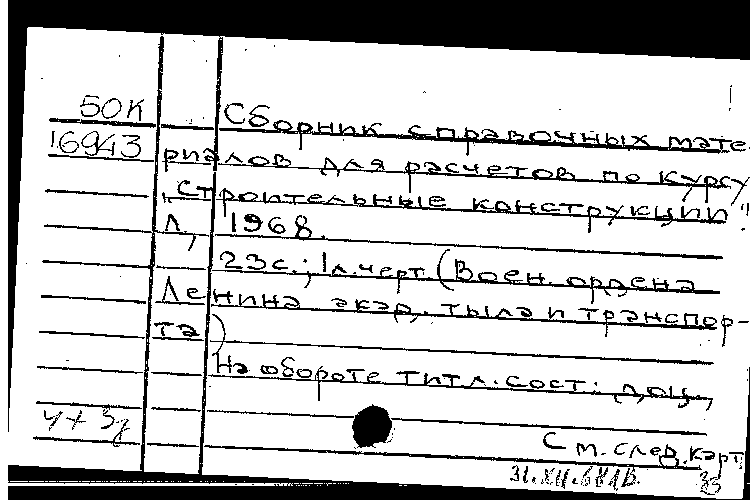 50К
16943
Сборник справочных мате-
риалов для расчетов по курсу
„Строительные конструкции".
Л, 1968.
23с.; 1л.черт. (Воен. ордена
Ленина акад. тыла и транспор-
та)
На обороте титл. сост.: доц.,
4+3д
См. след. карт
31.XII.68
35